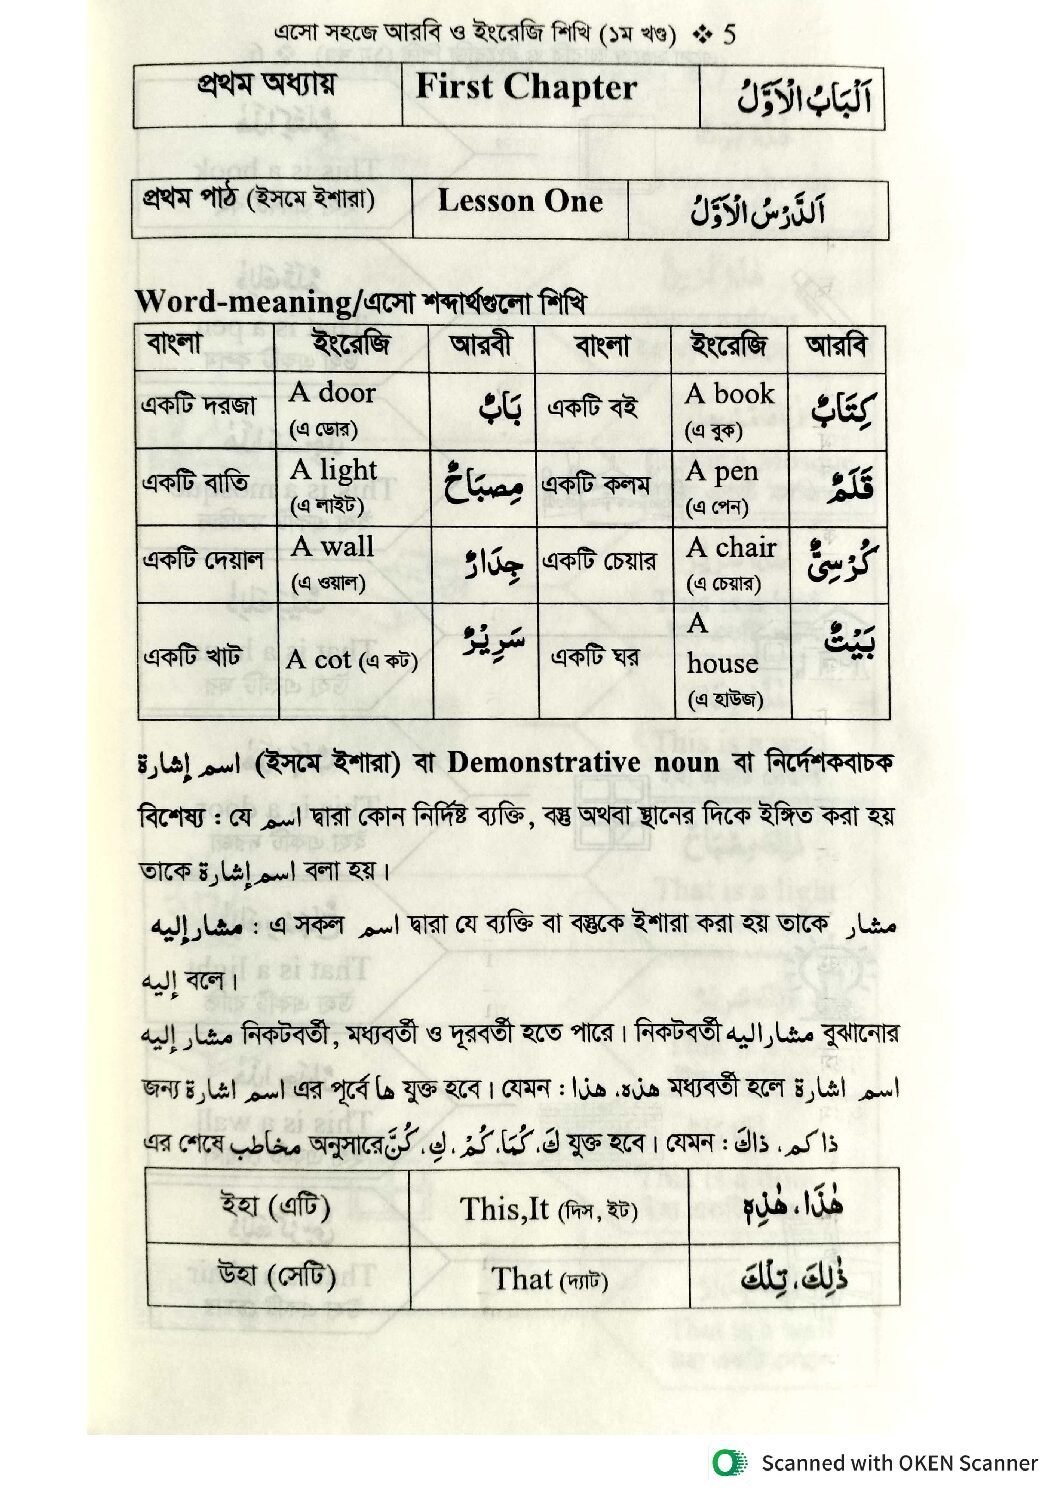 এসো সহজে আরবি ও ইংরেজি শিখি (১ম খণ্ড) ❖ 5
প্রথম অধ্যায় First Chapter اَلْبَابُ الْاَوَّلُ
প্রথম পাঠ (ইসমে ইশারা) Lesson One اَلدَّرْسُ الْاَوَّلُ
Word-meaning/এসো শব্দার্থগুলো শিখি
বাংলা ইংরেজি আরবী বাংলা ইংরেজি আরবি
একটি দরজা A door (এ ডোর) بَابٌ একটি বই A book (এ বুক) كِتَابٌ
একটি বাতি A light (এ লাইট) مِصبَاحٌ একটি কলম A pen (এ পেন) قَلَمٌ
একটি দেয়াল A wall (এ ওয়াল) جِدَارٌ একটি চেয়ার A chair (এ চেয়ার) كُرْسِيٌّ
একটি খাট A cot (এ কট) سَرِيْرٌ একটি ঘর A house (এ হাউজ) بَيْتٌ
اسم إشارة (ইসমে ইশারা) বা Demonstrative noun বা নির্দেশকবাচক
বিশেষ্য : যে اسم দ্বারা কোন নির্দিষ্ট ব্যক্তি, বস্তু অথবা স্থানের দিকে ইঙ্গিত করা হয়
তাকে اسم إشارة বলা হয়।
مشار إليه : এ সকল اسم দ্বারা যে ব্যক্তি বা বস্তুকে ইশারা করা হয় তাকে مشار
إليه বলে।
مشار إليه নিকটবর্তী, মধ্যবর্তী ও দূরবর্তী হতে পারে। নিকটবর্তী مشار اليه বুঝানোর
জন্য اسم اشارة এর পূর্বে ها যুক্ত হবে। যেমন : هذه، هذا মধ্যবর্তী হলে اسم اشارة
এর শেষে مخاطب অনুসারে كَ، كُمَا، كُمْ، كِ، كُنَّ যুক্ত হবে। যেমন : ذا كم، ذاكَ
ইহা (এটি) This,It (দিস, ইট) هٰذَا، هٰذِهٖ
উহা (সেটি) That (দ্যাট) ذٰلِكَ، تِلْكَ
Scanned with OKEN Scanner